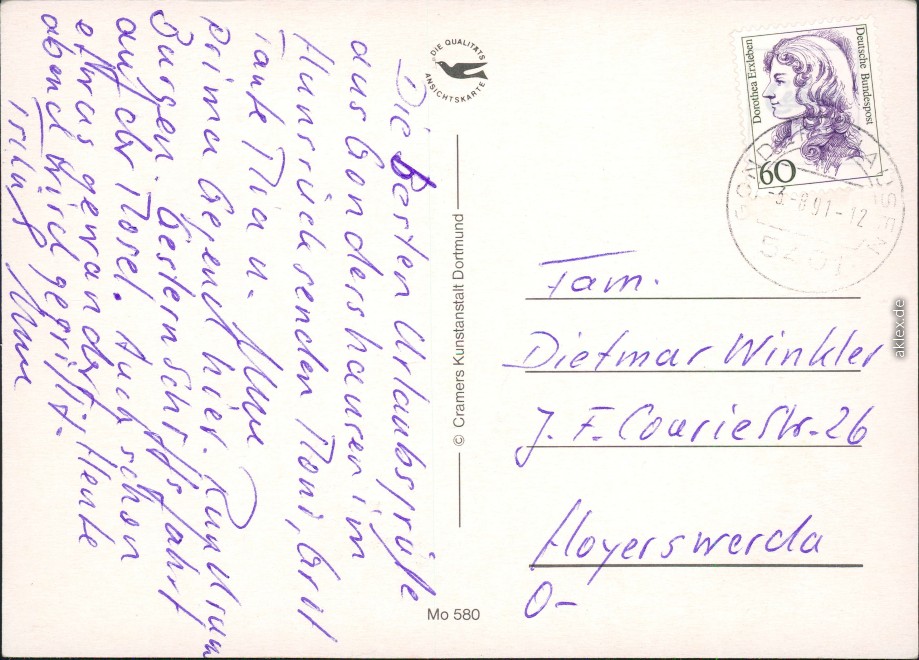 Die Besten Urlaubsgrüße
aus Gondershausen im
Hunsrück senden Moni, Gril
Tante Mia u.
Prima Gegend hier. Rundrum
Burgen. Gestern Schiffsfahrt
auf der Mosel. Auch schon
etwas gewandert. Heute
abend wird gegrillt.
DIE QUALITÄTS
ANSICHTSKARTE
© Cramers Kunstanstalt Dortmund
Mo 580
Dorothea Erxleben
Deutsche Bundespost
60
-8.91-12
5401
Fam.
Dietmar Winkler
J. F. CourieStr. 26
Hoyerswerda
O-
aklex.de